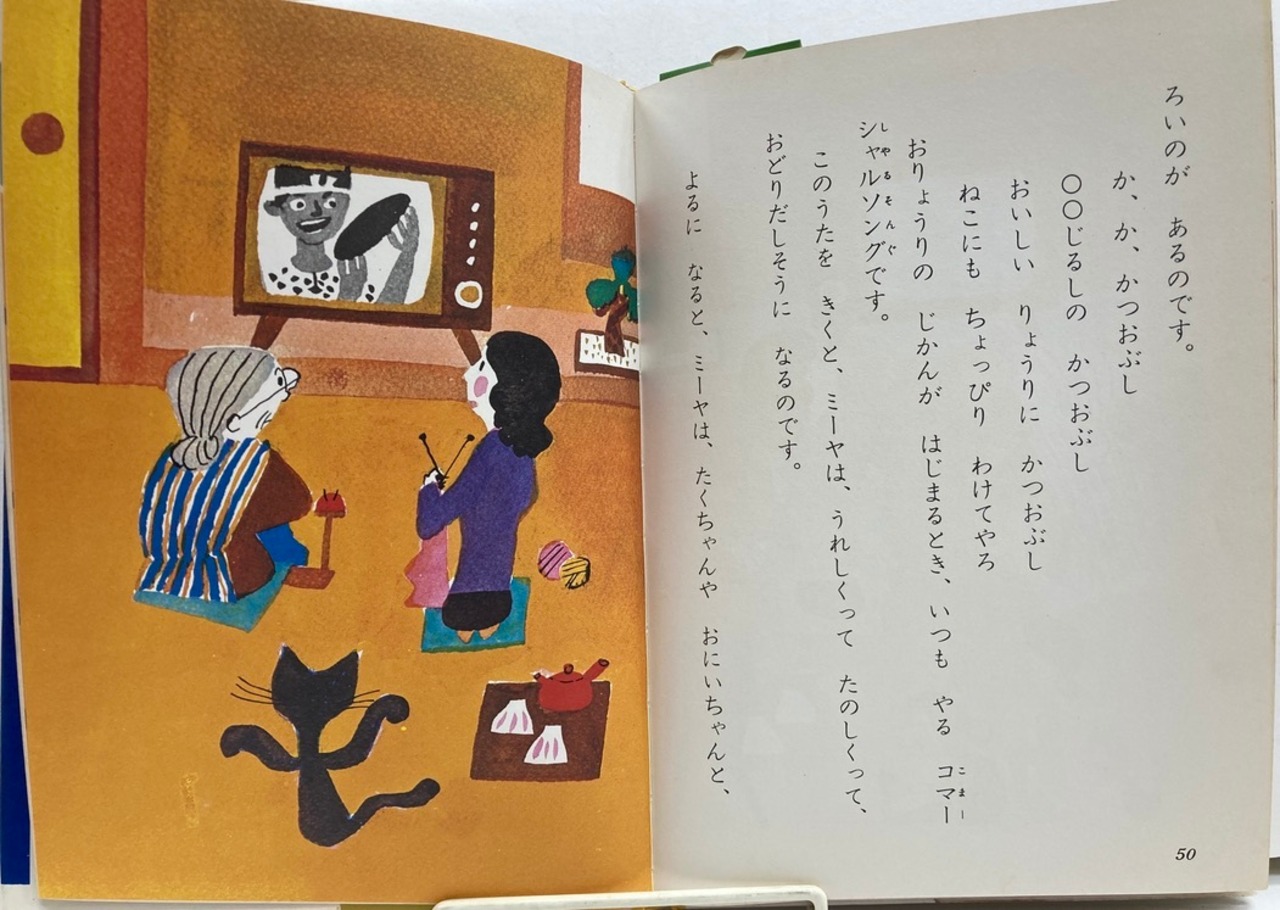 ろいのが あるのです。
か、か、かつおぶし
○○じるしの かつおぶし
おいしい りょうりに かつおぶし
ねこにも ちょっぴり わけてやろ
おりょうりの じかんが はじまるとき、いつも やる コマー
シャルソングです。
このうたを きくと、ミーヤは、うれしくって たのしくって、
おどりだしそうに なるのです。
よるに なると、ミーヤは、たくちゃんや おにいちゃんと、
50